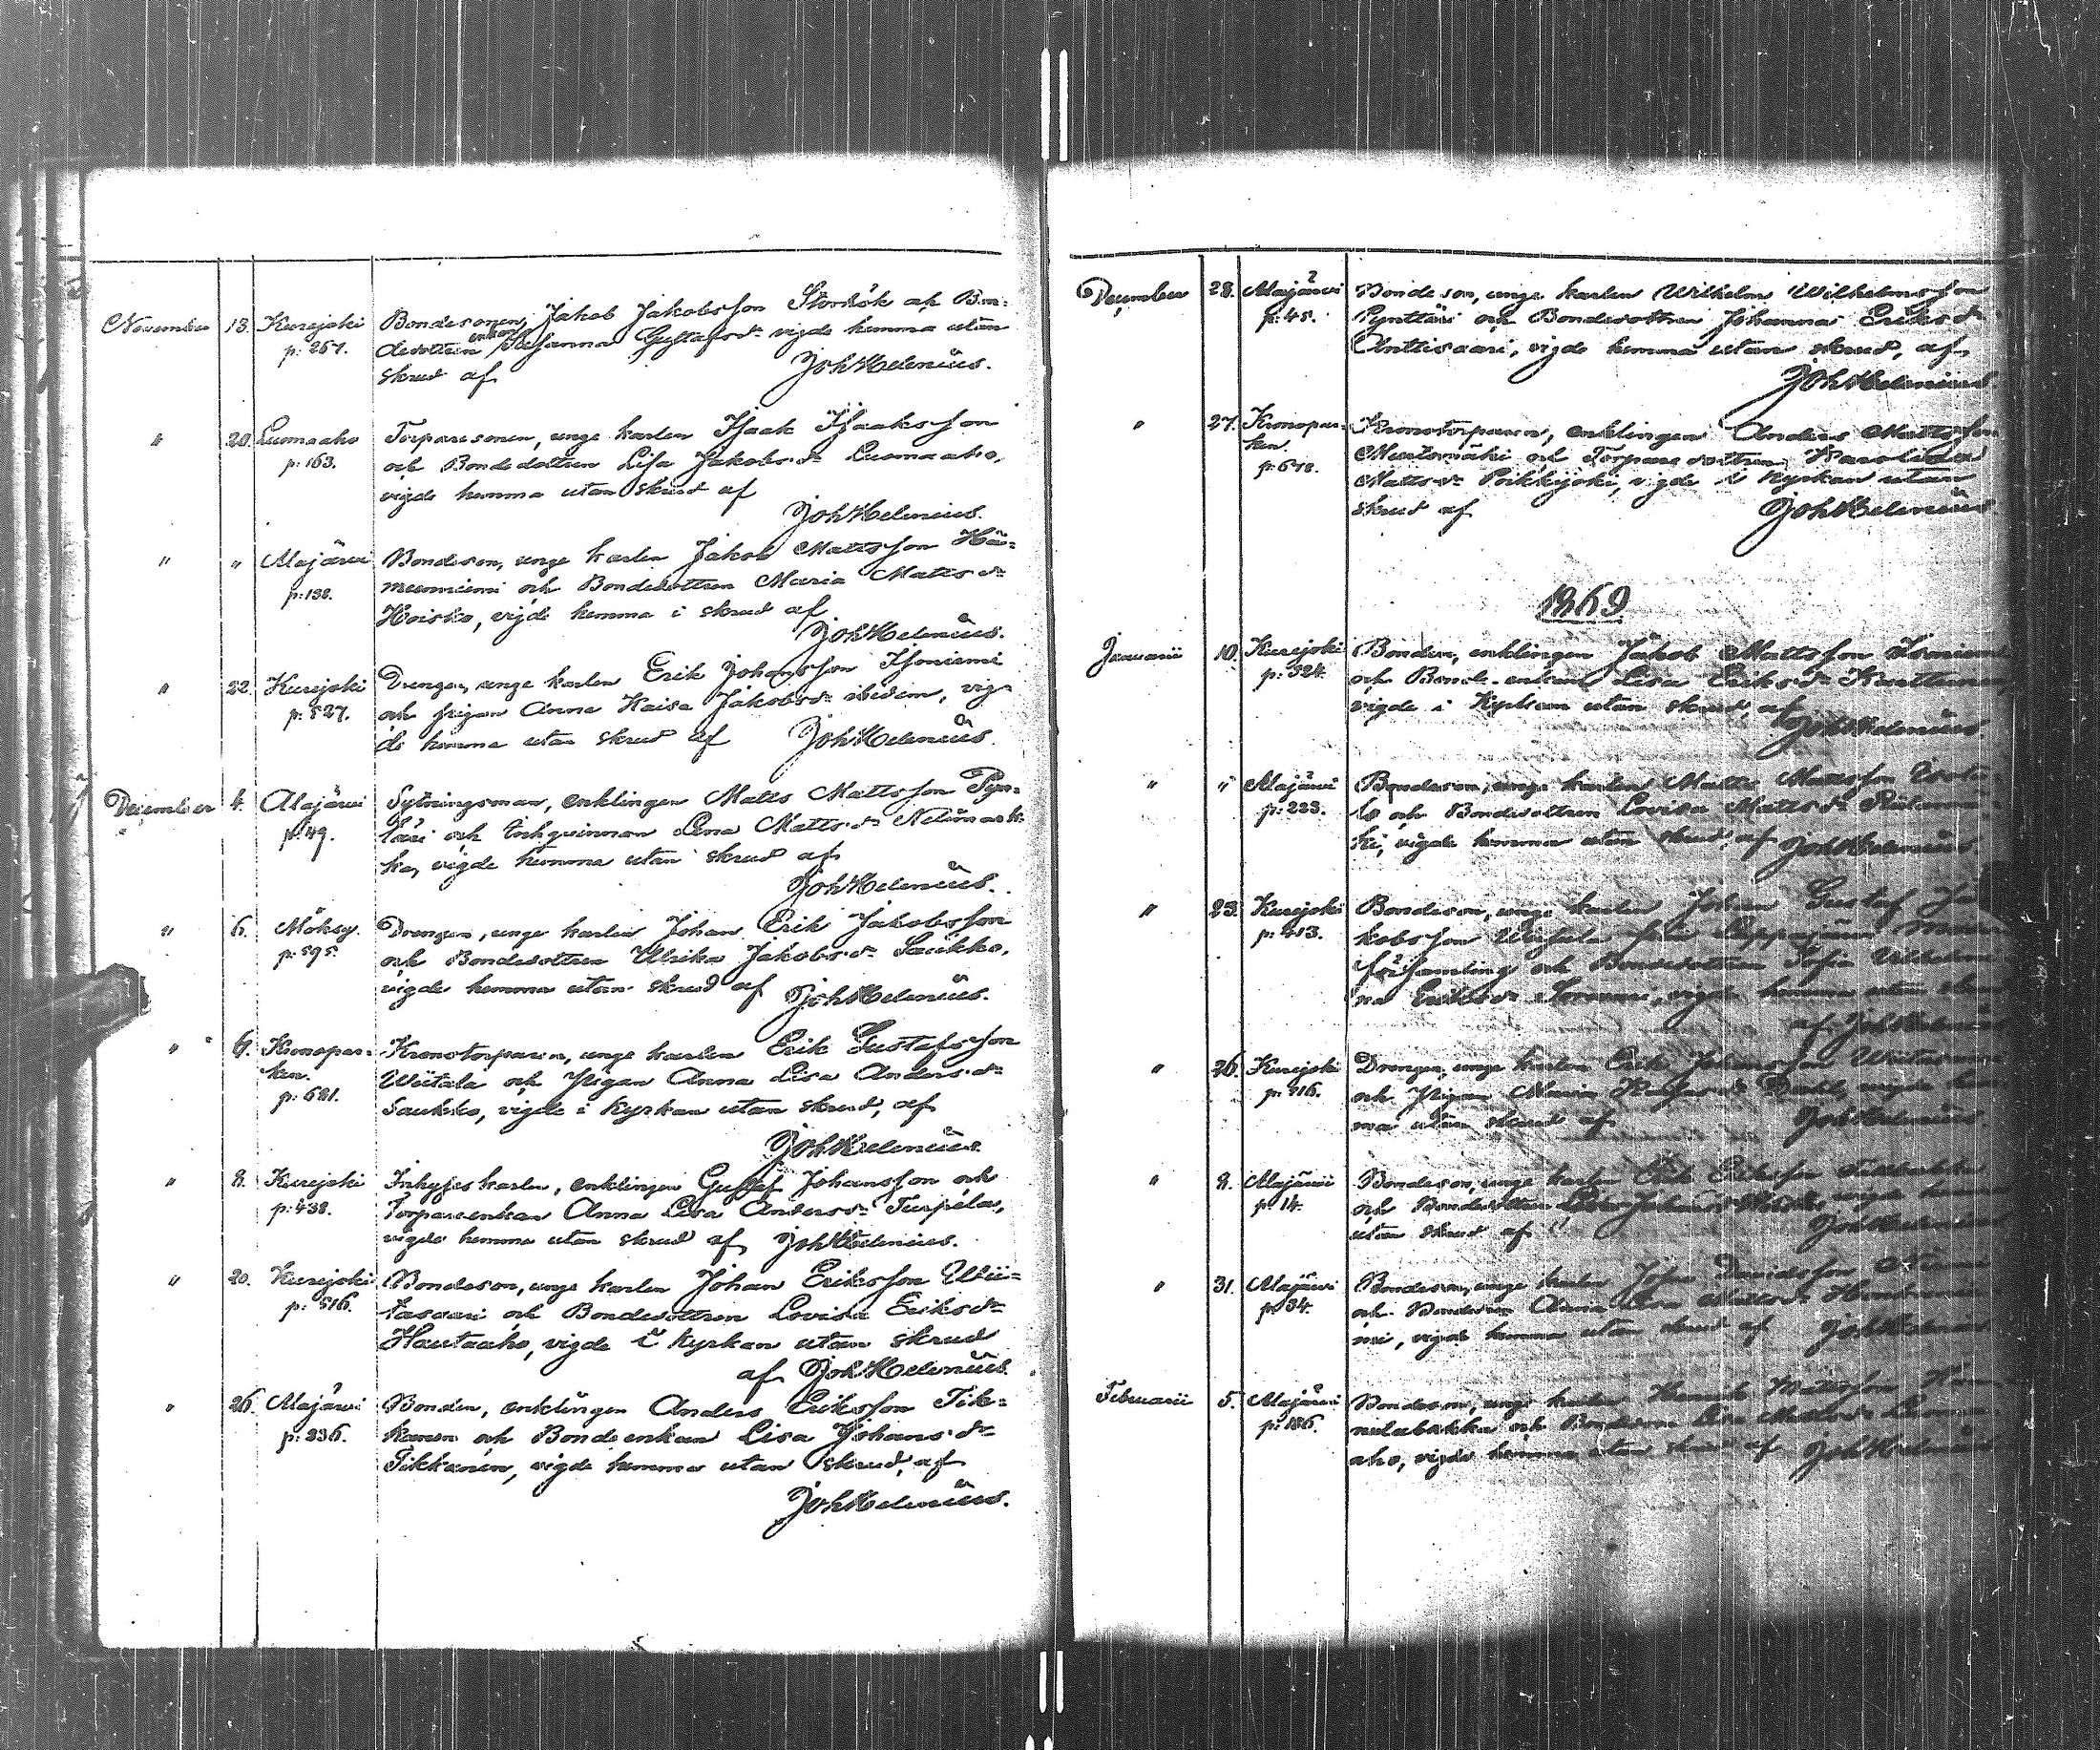 November 13. Kurejoki Bondesonen, Jakob Jakobsson Storhök och Bon-
p: 267. dedottren enkan Susanna Gustafsdr vigde hemma utan
skrud af Joh Helenius.
" 20. Luomaaho Torparesonen, unge karlen Isaak Isaaksson
p: 163. och Bondedottren Lisa Jakobsdr Luomaaho,
vigde hemma utan skrud af
Joh Helenius.
" " Alajärvi Bondeson, unge karlen Jakob Mattsson Hä-
p: 138. meenniemi och Bondedottren Maria Mattsdr
Hoisko, vigde hemma i skrud af
Joh Helenius.
" 22. Kurejoki Drengen, unge karlen Erik Johansson Isoniemi
p: 527. och pigan Anna Kaisa Jakobsdr ibidem, vig-
de hemma utan skrud af Joh Helenius.
December 4. Alajärvi Sytningsman, enklingen Matts Mattsson Pyn-
p: 49. täri och Inhqvinnan Lena Mattsdr Nelimark-
ka, vigde hemma utan skrud af
Joh Helenius.
" 6. Möksy. Drengen, unge karlen Johan Erik Jakobsson
p: 595. och Bondedottren Ulrika Jakobsdr Saukko,
vigde hemma utan skrud af Joh Helenius.
" 6. Kronopar- Kronotorparen, unge karlen Erik Gustafsson
ken. Wiitala och pigan Anna Lisa Andersdr
p: 681. Saukko, vigde i Kyrkan utan skrud, af
Joh Helenius.
" 8. Kurejoki Inhyses karlen, enklingen Gustaf Johansson och
p: 438. Torpareenkan Anna Lisa Andersdr Turpela,
vigde hemma utan skrud af Joh Helenius.
" 20. Kurejoki Bondeson, unge karlen Johan Eriksson Wii-
p: 516. tasaari och Bondedottren Lovisa Eriksdr
Hautaaho, vigde i Kyrkan utan skrud
af Joh Helenius.
" 26. Alajärvi Bonden, enklingen Anders Eriksson Tik-
p: 336. kanen och Bondeenkan Lisa Johansdr
Tikkanen, vigde hemma utan skrud, af
Joh Helenius.
December 28. Alajärvi Bondeson, unge karlen Wilhelm Wilhelmsson
p: 45. Pynttäri och Bondedottren Johanna Eriksdr
Anttisaari, vigde hemma utan skrud, af
Joh Helenius.
" 27. Kronopar- Kronotorparen, enklingen Anders Mattsson
ken. och Torparedottren Karolina
p: 678. Mattsdr Poikkijoki, vigde i Kyrkan utan
skrud af Joh Helenius
1869
Januarii 10. Kurejoki Bonden, enklingen Jakob Mattsson Isoniemi
p: 524. och Bonde-enkan Lisa Eriksdr
vigde i Kyrkan utan skrud, af
Joh Helenius.
" " Alajärvi Bondeson, unge karlen Matts Mattsson
p: 233. och Bondedottren Lovisa Mattsdr
ki, vigde hemma utan skrud, af Joh Helenius.
" 23. Kurejoki Bondeson, unge karlen Johan Gustaf Ja-
p: 413. kobsson från Lappajärvi
församling och Bondedottren Sofia Vilhelmi-
na Eriksdr vigde hemma utan
af Joh Helenius
" 26. Kurejoki Drengen, unge karlen Erik Johansson
p: 516. och pigan Maria vigde hem-
ma utan skrud af Joh Helenius.
" 8. Alajärvi Bondeson, unge karlen Erik Eriksson
p: 14. och Bondedottren vigde hemma
utan skrud af Joh Helenius
" 31. Alajärvi Bondeson, unge karlen Davidsson
p: 34. och Anna Lisa Mattsdr
mi, vigde hemma utan skrud af Joh Helenius
Februarii 5. Alajärvi Bondeson, unge karlen Henrik Mattsson
p: 186. och Lisa Mattsdr
aho, vigde hemma utan skrud af Joh Helenius